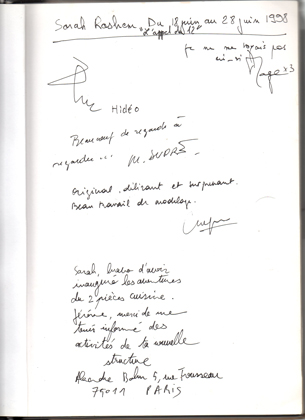 Sarah Roshem Du 18 juin au 28 juin 1998
"L'appel du 12"
Je ne me voyais pas
ain-si
x3
HiDéO
Beaucoup de regards à
regarder... M. ANDRÉ
Original, délirant et surprenant.
Beau travail de modelage.
Sarah, bravo d'avoir
inauguré les aventures
du 2 pièces cuisine.
Jérôme, merci de me
tenir informé des
activités de la nouvelle
structure
Alexandre 5, rue
75011 PARIS